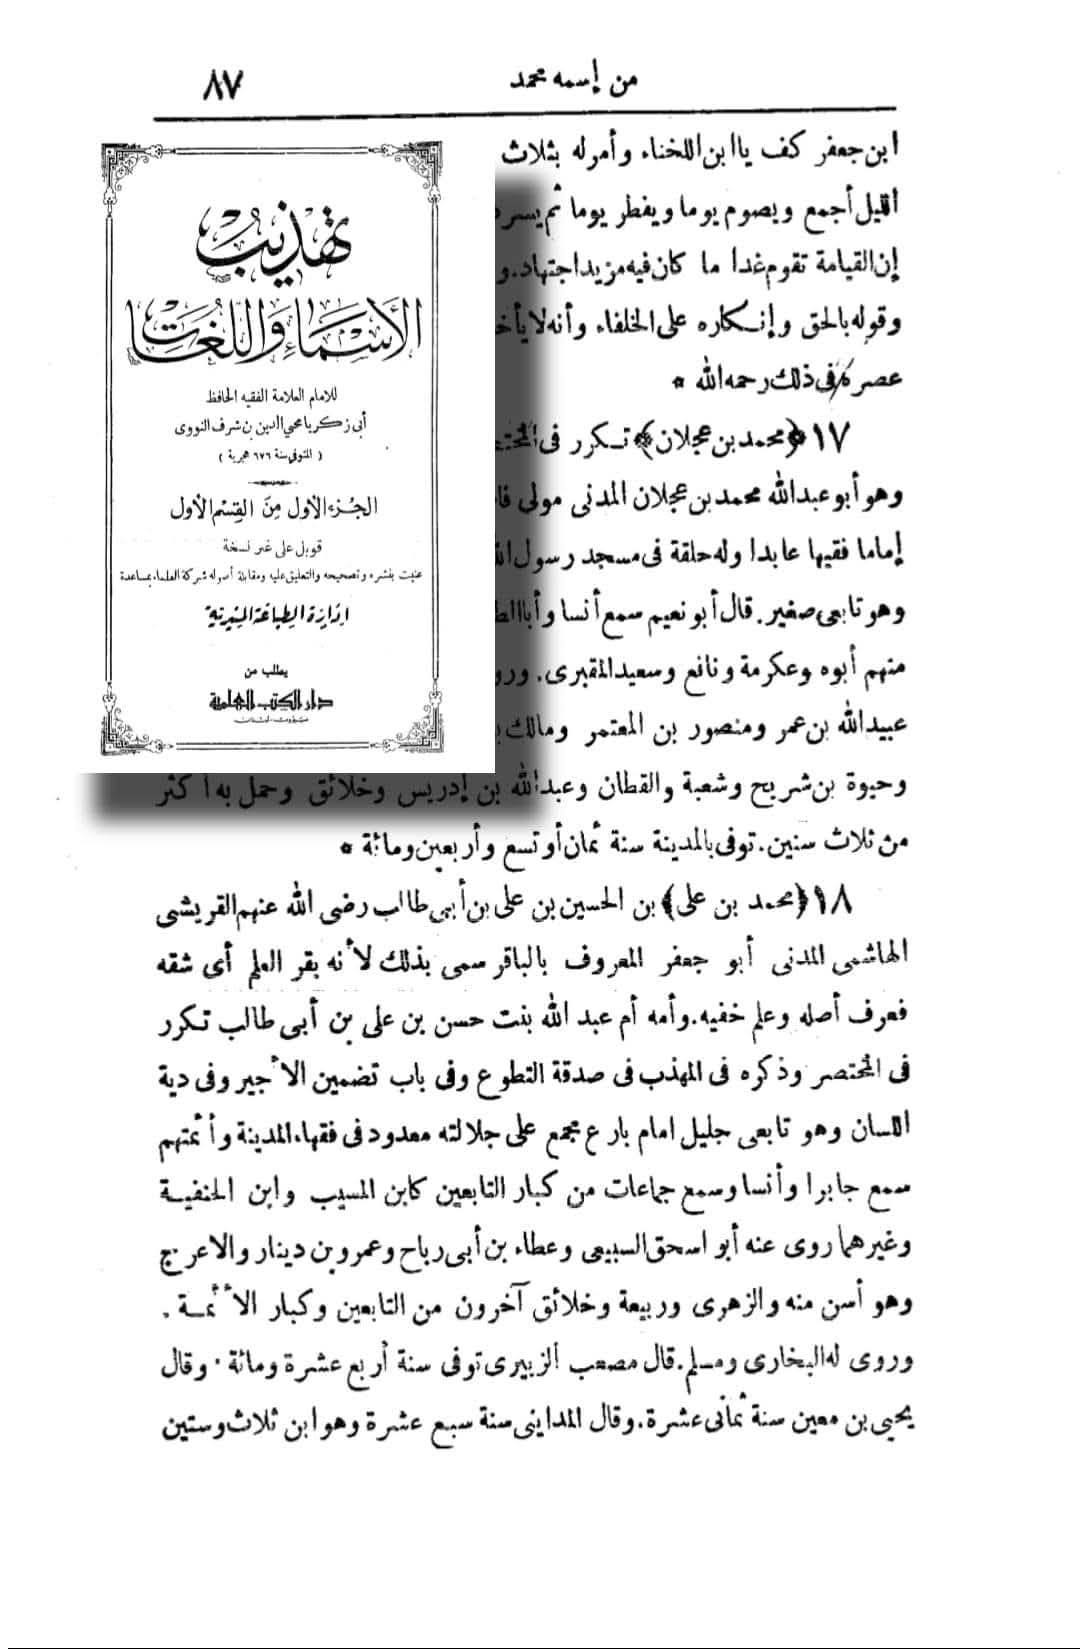 من إسمه محمد ٨٧
ابن جعفر كف يا ابن اللخناء وأمر له بثلاث
الليل أجمع ويصوم يوما ويفطر يوما ثم يسرد
إن القيامة تقوم غدا ما كان فيه مزيد اجتهاد. و
وقوله بالحق وإنكاره على الخلفاء وأنه لا يأخ
عصره فى ذلك رحمه الله *
١٧ ﴿محمد بن عجلان﴾ تكرر فى المخت
وهو أبو عبد الله محمد بن عجلان المدنى مولى فا
إماما فقيها عابدا وله حلقة فى مسجد رسول الله
وهو تابعى صغير. قال أبو نعيم سمع أنسا وأبا الط
منهم أبوه وعكرمة ونافع وسعيد المقبرى. ورو
عبيد الله بن عمر ومنصور بن المعتمر ومالك ب
وحيوة بن شريح وشعبة والقطان وعبد الله بن إدريس وخلائق وحمل به أكثر
من ثلاث سنين. توفى بالمدينة سنة ثمان أو تسع وأربعين ومائة *
١٨ ﴿محمد بن على﴾ بن الحسين بن على بن أبى طالب رضى الله عنهم القريشى
الهاشمى المدنى أبو جعفر المعروف بالباقر سمى بذلك لأنه بقر العلم أى شقه
فعرف أصله وعلم خفيه. وأمه أم عبد الله بنت حسن بن على بن أبى طالب تكرر
فى المختصر وذكره فى المهذب فى صدقة التطوع وفى باب تضمين الأجير وفى دية
اللسان وهو تابعى جليل امام بارع مجمع على جلالته معدود فى فقهاء المدينة وأئمتهم
سمع جابرا وأنسا وسمع جماعات من كبار التابعين كابن المسيب وابن الحنفية
وغيرهما روى عنه أبو اسحق السبيعى وعطاء بن أبى رباح وعمرو بن دينار والاعرج
وهو أسن منه والزهرى وربيعة وخلائق آخرون من التابعين وكبار الأئمة.
وروى له البخارى ومسلم. قال مصعب الزبيرى توفى سنة أربع عشرة ومائة. وقال
يحيى بن معين سنة ثمانى عشرة. وقال المداينى سنة سبع عشرة وهو ابن ثلاث وستين
تهذيب
الأسماء واللغات
للامام العلامة الفقيه الحافظ
أبى زكريا محيى الدين بن شرف النووى
( المتوفى سنة ٦٧٦ هجرية )
الجزء الأول من القسم الأول
قوبل على غير نسخة
عنيت بنشره وتصحيحه والتعليق عليه ومقابلة أصوله شركة العلماء بمساعدة
إدارة الطباعة المنيرية
يطلب من
دار الكتب العلمية
بيروت - لبنان